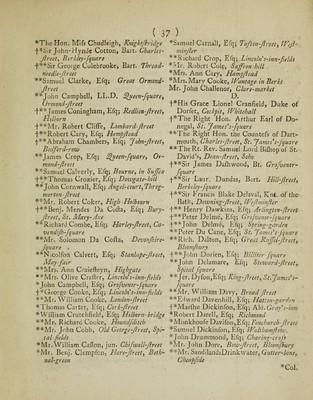 ( 37 )
*The Hon. Miſs Chudleigh, Knightſbridge
†*Sir John-Hynde Cotton, Bart. Charles-
ſtreet, Berkley-ſquare
†**Sir George Colebrooke, Bart. Thread-
needle-ſtreet
**Samuel Clarke, Eſq; Great Ormond-
ſtreet
*John Campbell, LL.D. Queen-ſquare,
Ormond-ſtreet
†**James Cuningham, Eſq; Redlion-ſtreet,
Holborn
†**Mr. Robert Cliffe, Lombard-ſtreet
†**Robert Cary, Eſq; Hampſtead
†**Abraham Chambers, Eſq; John-ſtreet,
Bedford-row
**James Crop, Eſq; Queen-ſquare, Or-
mond-ſtreet
**Samuel Calverly, Eſq; Bourne, in Suſſex
**Thomas Crozier, Eſq; Dowgate-hill
**John Cornwall, Eſq; Angel-court, Throg-
morton-ſtreet
**Mr. Robert Coker, High-Holbourn
†**Benj. Mendes Da Coſta, Eſq; Bury-
ſtreet, St. Mary-Axe
**Richard Combe, Eſq; Harley-ſtreet, Ca-
vendiſh-ſquare
**Mr. Solomon Da Coſta, Devonſhire-
ſquare
**Nicolſon Calvert, Eſq; Stanhope-ſtreet,
May-fair
**Mrs. Ann Craieſteyn, Highgate
**Mrs. Olive Craſter, Lincoln's-inn-fields
*John Campbell, Eſq; Groſvenor-ſquare
**George Cooke, Eſq; Lincoln's-inn-fields
*Mr. William Cooke, London-ſtreet
*Thomas Carter, Eſq; Cork-ſtreet
*William Crutchfield, Eſq; Holborn-bridge
**Mr. Richard Cooke, Houndſditch
**Mr. John Cobb, Old George-ſtreet, Spi-
tal fields
**Mr. William Caſlon, jun. Chiſwell-ſtreet
*Mr. Benj. Clempſon, Hare-ſtreet, Beth-
nal-green
*Samuel Carnall, Eſq; Tufton-ſtreet, Weſt-
minſter
**Richard Crop, Eſq; Lincoln's-inn-fields
*Mr. Robert Cole, Saffron hill
*Mrs. Ann Cary, Hampſtead
*Mrs. Mary Cooke, Wantage in Berks
Mr. John Challenor, Clare-market
D.
†*His Grace Lionel Cranfield, Duke of
Dorſet, Cockpit, Whitehall
†*The Right Hon. Arthur Earl of Do-
negal, St. James's-ſquare
**The Right Hon. the Counteſs of Dart-
mouth, Charles-ſtreet, St. James's-ſquare
**The Rt. Rev. Samuel Lord Biſhop of St.
David's, Dean-ſtreet, Soho
†**Sir James Daſhwood, Bt. Groſvenor-
ſquare
†**Sir Laur. Dundas, Bart. Hill-ſtreet,
Berkeley-ſquare
†**Sir Francis Blake Delaval, Knt. of the
Bath, Downing-ſtreet, Weſtminſter
†** Henry Dawkins, Eſq; Arlington-ſtreet
†**Peter Delmé, Eſq; Groſvenor-ſquare
†**John Delmé, Eſq; Spring-garden
**Peter Du Cane, Eſq; St. James's ſquare
**Rich. Dalton, Eſq; Great Ruſſel-ſtreet,
Bloomſbury
†**John Dorien, Eſq; Billiter ſquare
**John Delamare, Eſq; Steward-ſtreet,
Spital ſquare
**Jer. Dyſon, Eſq; King-ſtreet, St. James's-
ſquare
**Mr. William Davy, Broad ſtreet
**Edward Davenhill, Eſq; Hatton-garden
**Marſhe Dickinſon, Eſq; Ald. Gray's-inn
**Robert Darell, Eſq; Richmond
**Monkhouſe Daviſon, Eſq; Fenchurch-ſtreet
**Samuel Dickinſon, Eſq;
*John Drummond, Eſq; Charing-croſs
**Mr. John Dorr, Bow-ſtreet, Bloomſbury
**Mr. Sandilands Drinkwater, Gutter-lane,
Cheapſide
*Col.